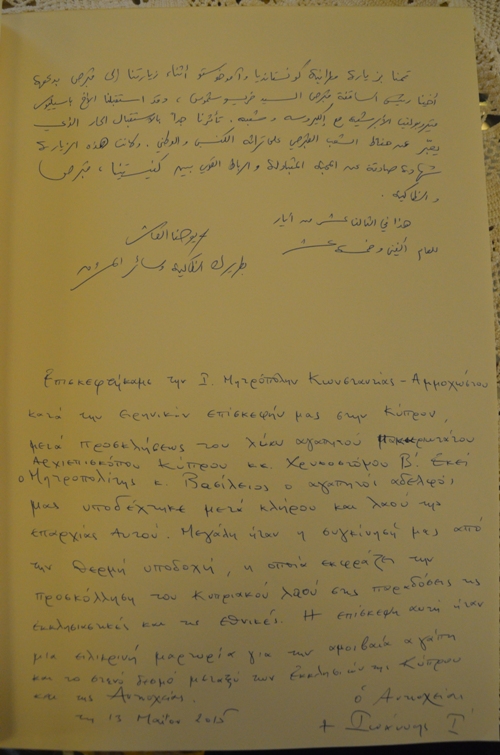 قمنا بزيارة مطرانية كونستانديا وآموخوستو أثناء زيارتنا إلى قبرص بدعوة
أخينا رئيس أساقفة قبرص السيد خريسوستوموس، وقد استقبلنا الأخ باسيليوس
متروبوليت الأبرشية مع إكليروسه وشعبه. تأثرنا جدا بالاستقبال الحار الذي
يعبّر عن حفاظ الشعب القبرصي على تراثه الكنسي والوطني. وكانت هذه الزيارة
شهادة صادقة عن المحبة المتبادلة والرباط القوي بين كنيستينا، قبرص
وأنطاكية.
هذا في الثالث عشر من أيار
للعام ألفين وخمسة عشر
+ يوحنا العاشر
بطريرك أنطاكية وسائر المشرق
Επισκεφτήκαμε την Ι. Μητρόπολιν Κωνσταντίας - Αμμοχώστου
κατά την ειρηνικήν επίσκεψήν μας στην Κύπρον,
μετά προσκλήσεως του λίαν αγαπητού μακαριωτάτου
Αρχιεπισκόπου Κύπρου κκ. Χρυσοστόμου Β΄. Εκεί
ο Μητροπολίτης κ. Βασίλειος ο αγαπητός αδελφός
μας υποδέχτηκε μετά κλήρου και λαού της
επαρχίας Αυτού. Μεγάλη ήταν η συγκίνησή μας από
την θερμή υποδοχή, η οποία εκφράζει την
προσκόλληση του Κυπριακού λαού στις παραδόσεις της
εκκλησιαστικές και τις εθνικές. Η επίσκεψη αυτή ήταν
μία ειλικρινή μαρτυρία για την αμοιβαία αγάπη
και το στενό δεσμό μεταξύ των Εκκλησιών της Κύπρου
και της Αντιοχείας.
τη 13 Μαΐου 2015
ο Αντιοχείας
+ Ιωάννης Ι΄